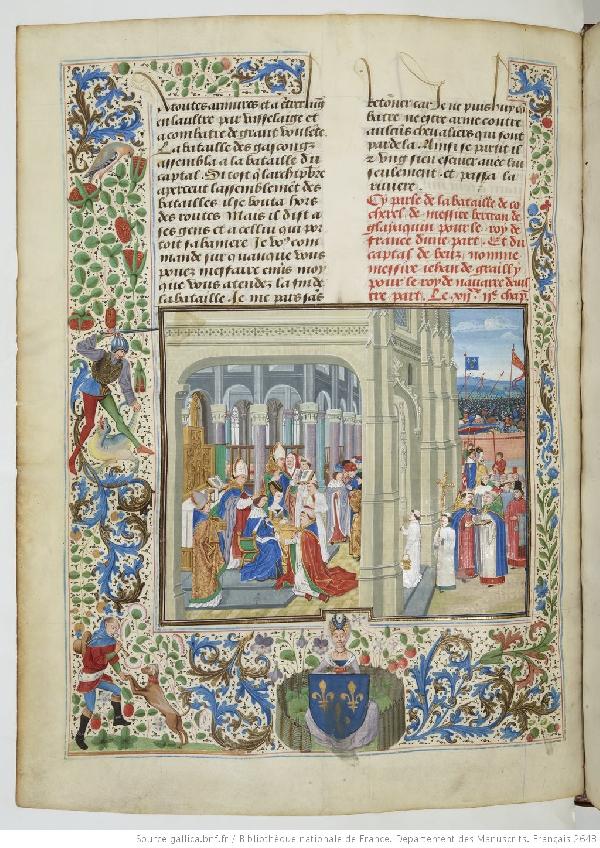 de toutes armures et a
en laultre par vasselaige et
a combatre de grant voulete.
La bataille des gascongz
assembla a la bataille du
captal. Si tost q larchipbre
apercent lassemblement des
batailles il se bouta hors
des routes Mais il dist a
ses gens et a cellui qui por
toit sa baniere Je vo9 com
mande sur quauque vous
pouez meffaire enus moy
que vous atendez la fin de
la bataille Je me pars sas
retourner car Je ne puis huy co
batre ne estre arme contre
aulcuns chevaliers qui sont
par dela. Ainsi se partit il
z vng sien escuier avec lui
seulement. et passa la
riviere.
Cy parle de la bataille de co
cherel de messire bertran de
glaiaquin pour le roy de
france dune part. Et du
captal de beuz nomme
messire iehan de grailly
pour le roy de navarre daul
tre part. Le .vii. chap.
Source gallica.bnf.fr / Bibliothèque nationale de France. Département des Manuscrits. Français 2643